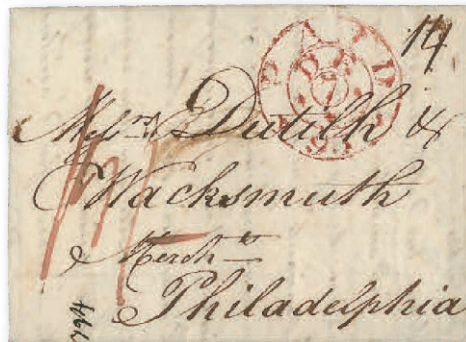 PAID
Messrs Dutilh &
Wacksmuth
Merchts
Philadelphia